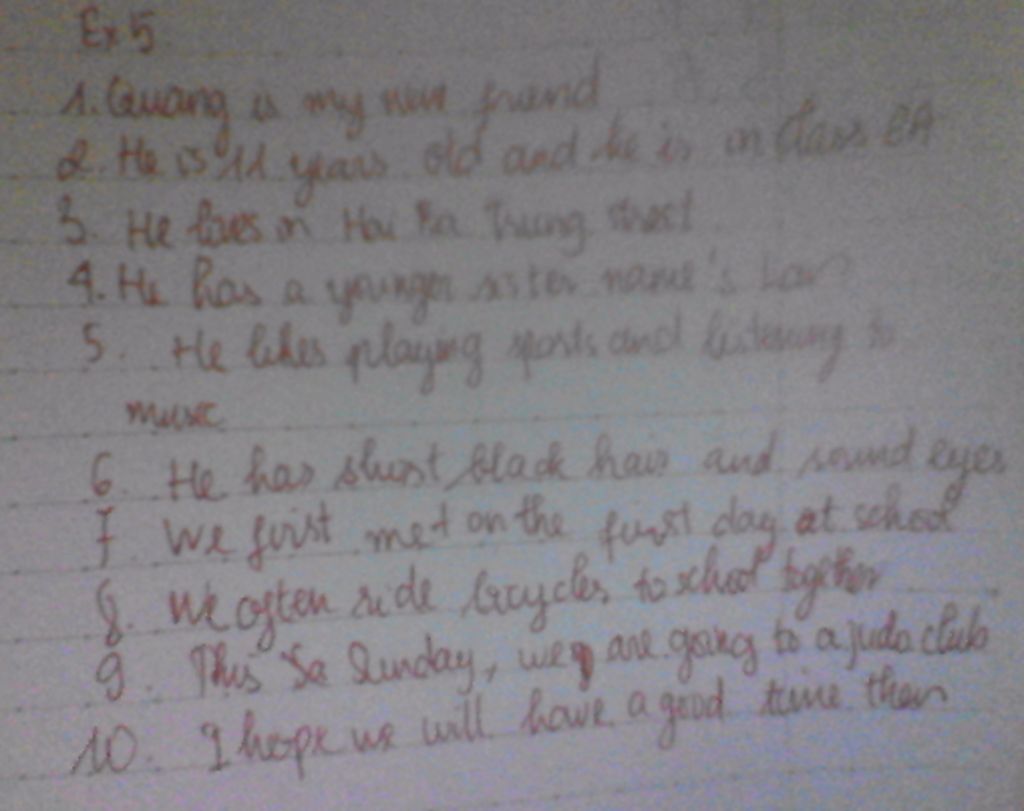 Ex 5
1. Quang is my new friend
2. He is 11 years old and he is in class 6A
3. He lives in Hai Ba Trung street
4. He has a younger sister name's
5. He likes playing sports and listening to
music
6. He has short black hair and round eyes
7. We first met on the first day at school
8. We often ride bicycles to school together
9. This Sunday, we are going to a judo club
10. I hope we will have a good time there